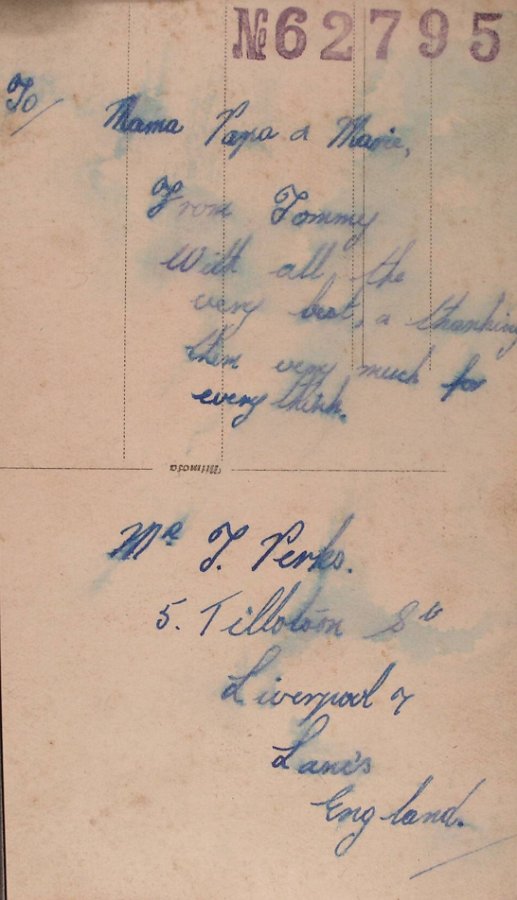 №62795
To/ Mama Papa & Marie,
From Tommy
With all the
very best, a thanking
them very much for
every think.
Mimosa
Mr T. Perks.
5. Tillotson St
Liverpool 7
Lancs
England.